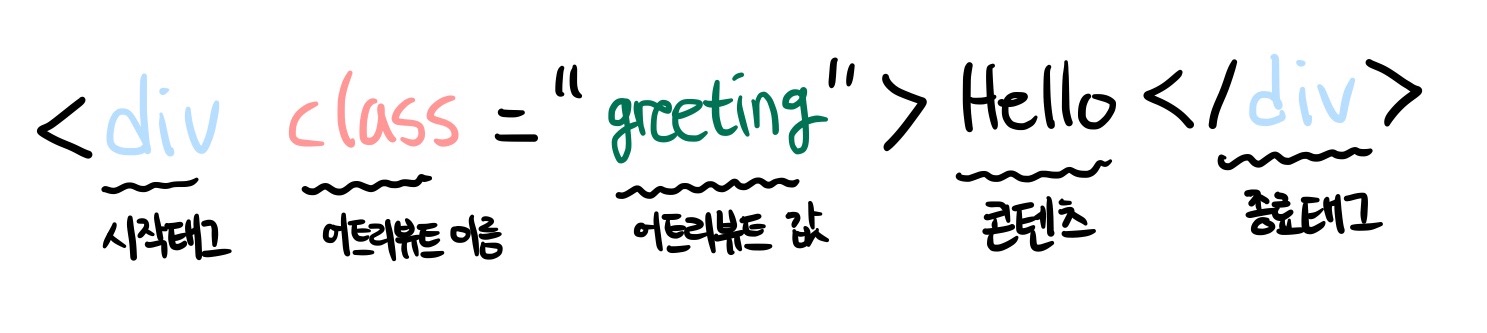 <div class="greeting">Hello</div>
시작태그 어트리뷰트 이름 어트리뷰트 값 콘텐츠 종료태그